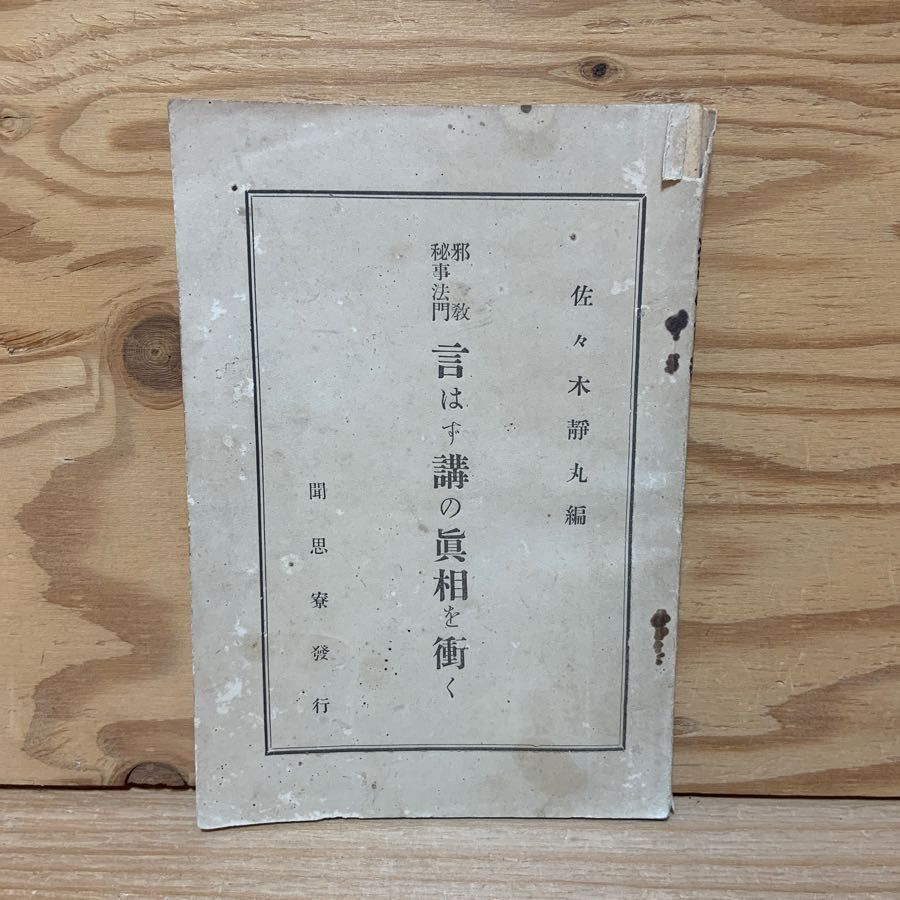 佐々木靜丸編
邪教
秘事法門
言はず講の眞相を衝く
聞思寮發行